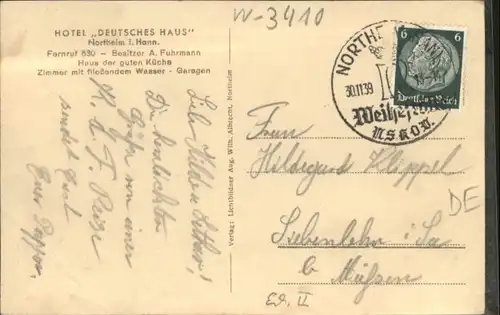 W-3410
HOTEL „DEUTSCHES HAUS"
Northeim i. Hann.
Fernruf 630 – Besitzer A. Fuhrmann
Haus der guten Küche
Zimmer mit fließendem Wasser - Garagen
Liebe Hilde u. Lothar!
Die herzlichsten
Grüße von einer
K. d. F. Reise
sendet Euch
Euer Pappa
Verlag: Lichtbildner Aug. Wilh. Albrecht, Northeim
NORTHEIM HANN.
30.11.39
6
6
Deutsches Reich
Frau
Hildegard Klöppel
Siebenlehn i. Sa
b
DE